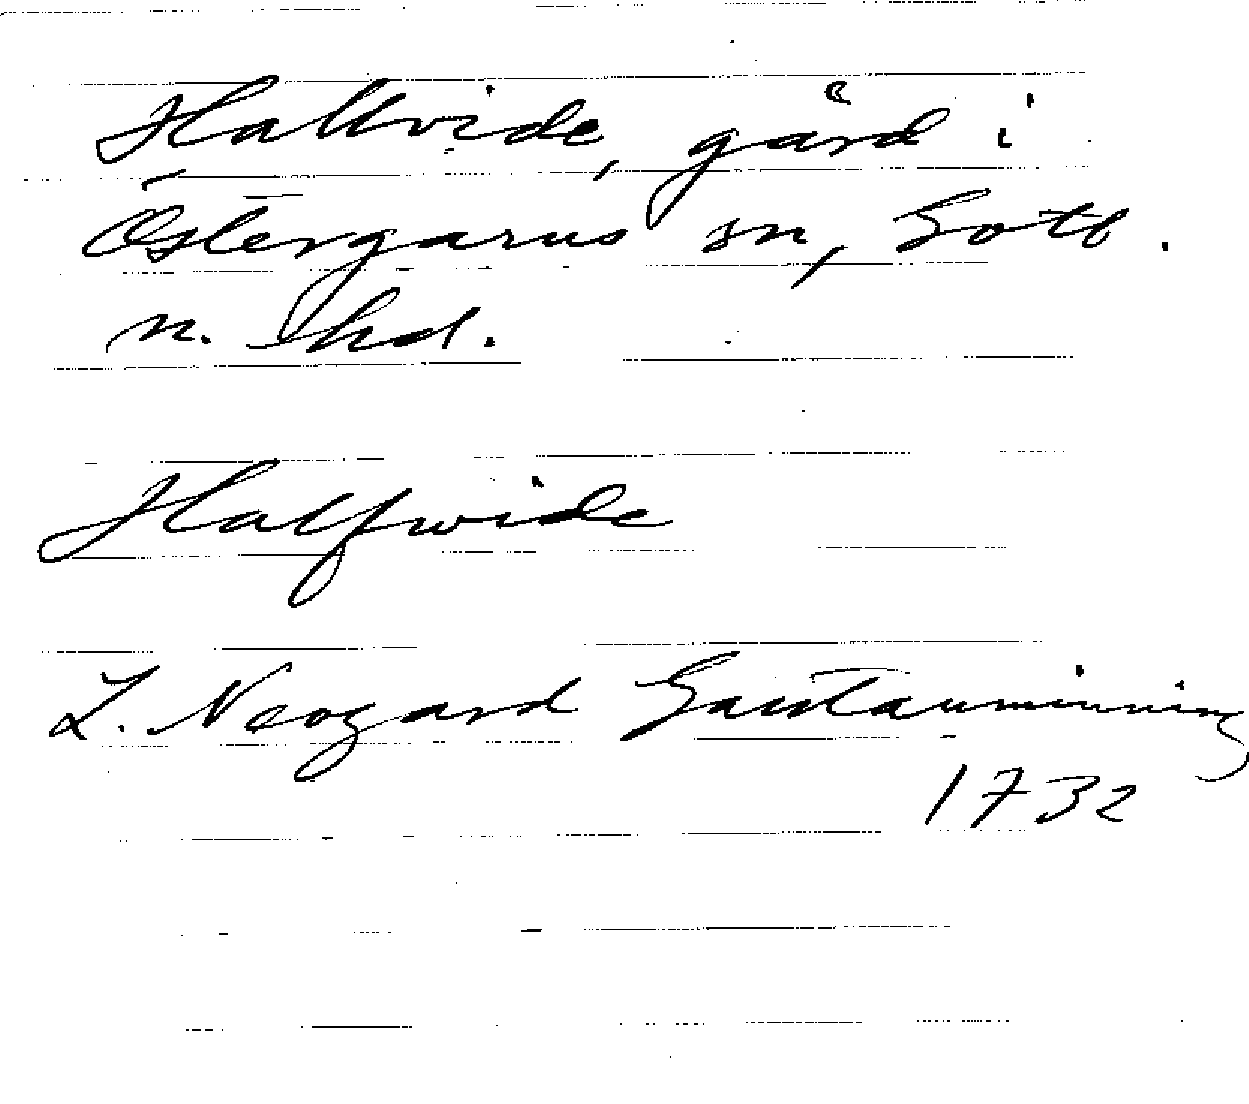 Hallvide, gård i
Östergarns sn, Gotl.
n. thd.
Halfwide
L. Neogard Gautauminning
1732